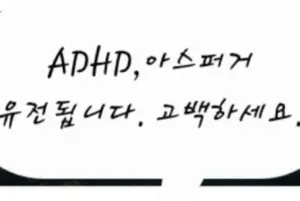 ADHD,아스퍼거
유전됩니다. 고백하세요.